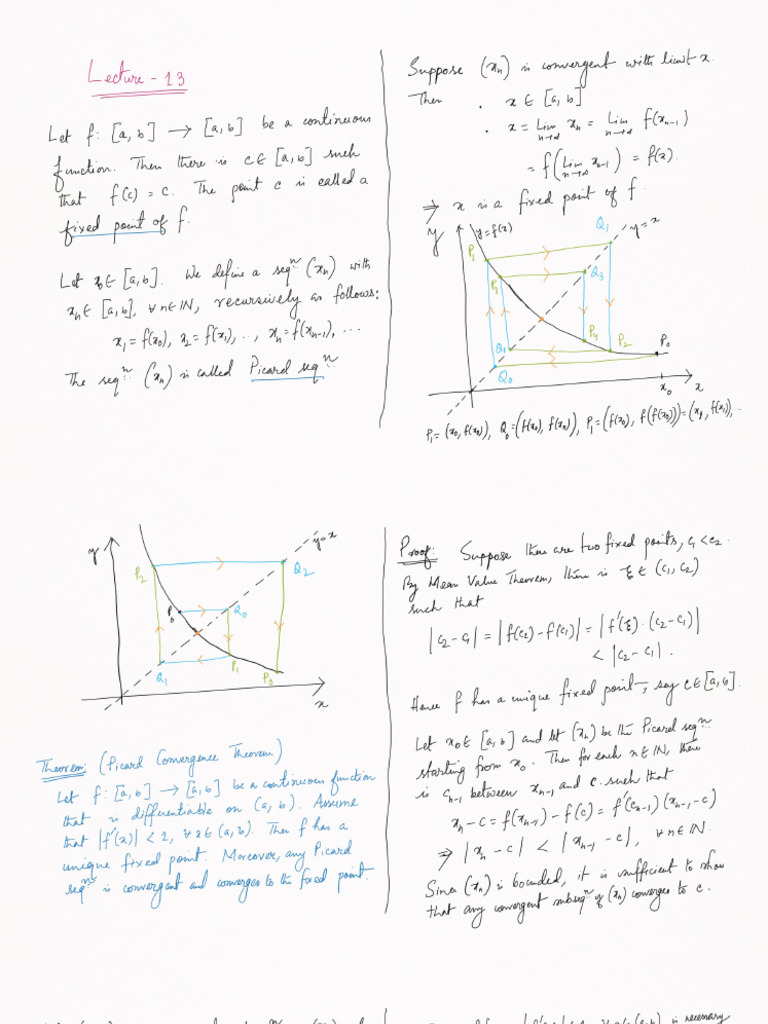 Lecture - 13
Let f: [a, b] → [a, b] be a continuous
function. Then there is c ∈ [a, b] such
that f(c) = c. The point c is called a
fixed point of f.
Let x₀ ∈ [a, b]. We define a seqⁿ (xₙ) with
xₙ ∈ [a, b], ∀ n ∈ ℕ, recursively as follows:
x₁ = f(x₀), x₂ = f(x₁), .., xₙ = f(xₙ₋₁), ...
The seqⁿ (xₙ) is called Picard seqⁿ.
Suppose (xₙ) is convergent with limit x.
Then . x ∈ [a, b]
. x = Lim xₙ = Lim f(xₙ₋₁)
n→∞ n→∞
= f(Lim xₙ₋₁) = f(x).
n→∞
⇒ x is a fixed point of f.
y
y = f(x)
Q₁
y = x
P₁
P₃
Q₃
P₄
P₂
P₀
Q₁
Q₀
x₀
x
P₁ = (x₀, f(x₀)), Q₀ = (f(x₀), f(x₀)), P₁ = (f(x₀), f(f(x₀))) = (x₁, f(x₁)), ..
y
y = x
P₂
Q₂
P₀
Q₀
Q₁
P₁
P₃
x
Theorem: (Picard Convergence Theorem)
Let f: [a, b] → [a, b] be a continuous function
that is differentiable on (a, b). Assume
that |f'(x)| < 1, ∀ x ∈ (a, b). Then f has a
unique fixed point. Moreover, any Picard
seqⁿ is convergent and converges to the fixed point
Proof: Suppose there are two fixed points, c₁ < c₂.
By Mean Value Theorem, there is ξ ∈ (c₁, c₂)
such that
|c₂ - c₁| = |f(c₂) - f(c₁)| = |f'(ξ) · (c₂ - c₁)|
< |c₂ - c₁|.
Hence f has a unique fixed point, say c ∈ [a, b].
Let x₀ ∈ [a, b] and let (xₙ) be the Picard seqⁿ
starting from x₀. Then for each n ∈ ℕ, there
is cₙ₋₁ between xₙ₋₁ and c such that
xₙ - c = f(xₙ₋₁) - f(c) = f'(cₙ₋₁)(xₙ₋₁ - c)
⇒ |xₙ - c| < |xₙ₋₁ - c|, ∀ n ∈ ℕ.
Since (xₙ) is bounded, it is sufficient to show
that any convergent subseqⁿ of (xₙ) converges to c.
is necessary